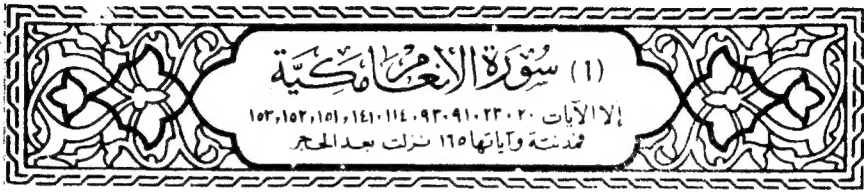 (٦) سُورَة الأنعَام مَكيَّة
إلا الآيات ٢٠، ٢٣، ٩١، ٩٣، ١١٤، ١٤١، ١٥١، ١٥٢، ١٥٣
فمدنية وآياتها ١٦٥ نزلت بعد الحجر